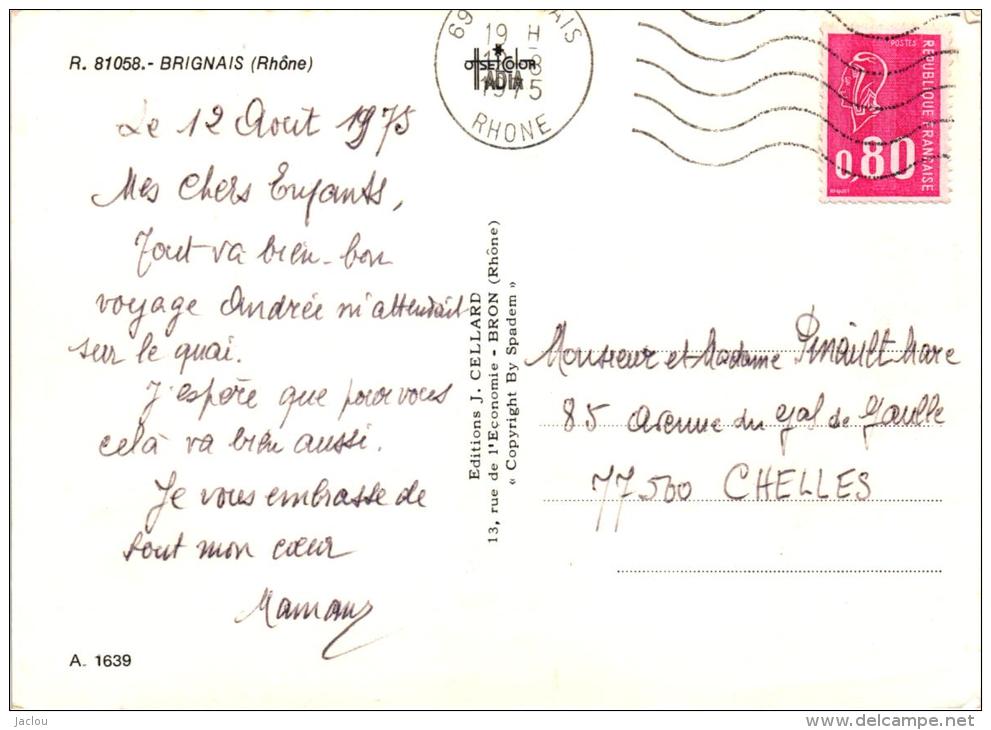 R. 81058.- BRIGNAIS (Rhône)
Le 12 Aout 1975
Mes Chers Enfants,
Tout va bien - bon
voyage Andrée m'attendait
sur le quai.
J'espère que pour vous
celà va bien aussi.
Je vous embrasse de
tout mon cœur
Maman
A. 1639
Editions J. CELLARD
13, rue de l'Economie - BRON (Rhône)
« Copyright By Spadem »
19 H
1975
RHONE
OFFSETCOLOR
ADIA
POSTES
REPUBLIQUE FRANÇAISE
0,80
Monsieur et Madame Pinault Marc
85 Avenue du Gal de Gaulle
77500 CHELLES
Jaclou
www.delcampe.net